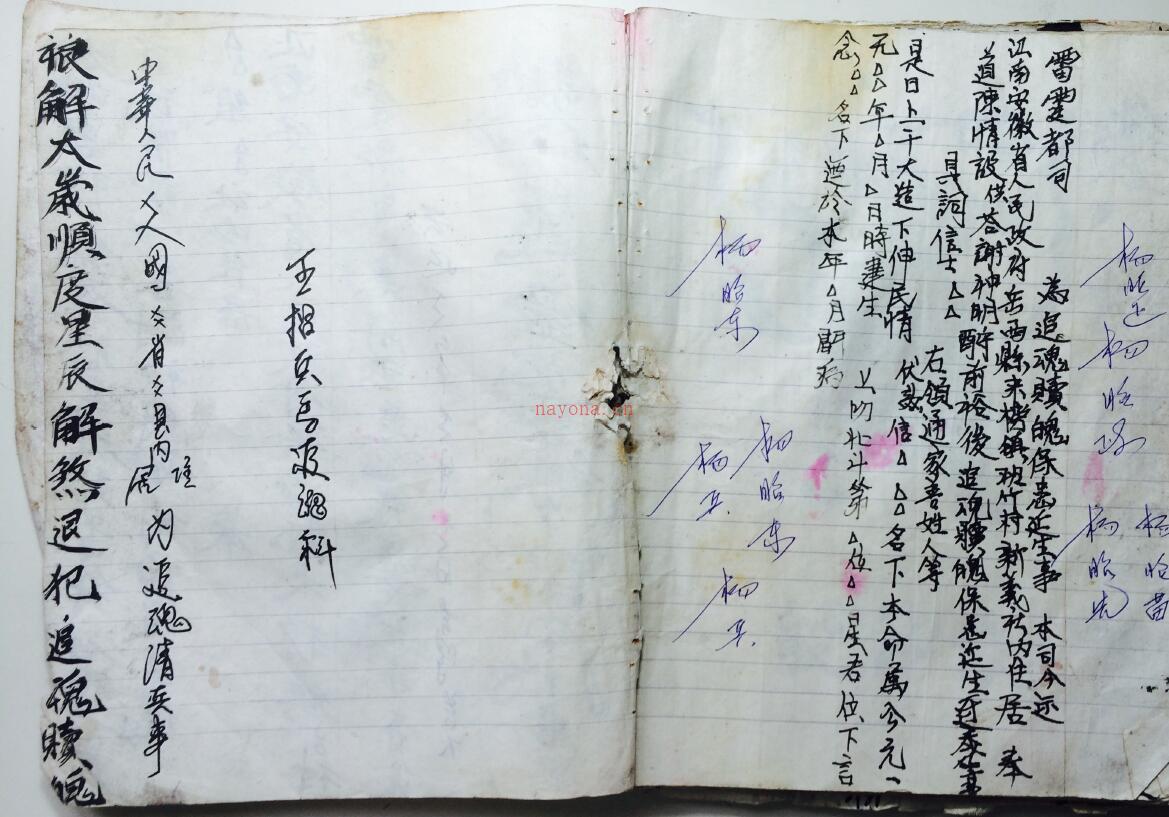 雷霆都司
為追魂贖魄保㤙延生事 本司今 逥
江南安徽省人民政府岳西縣来榜鎮斑竹村新義社內住居 奉
道陳情設供荅謝神明酧前裕後追魂贖魄保㤙延生 事
具詞信士△△
右領通家眷姓人等
是日上干大造下伸民情 伏羲信△△名下本命属 元
元△△年△月△日時建生 上叩北斗第△位△△星君位下言
念△△名下 於本年△月間病
柳昭
柳昭
柳昭
柳昭
柳昭东
柳昭东
柳兵
柳兵
王招兵 追魂科
中華人民 国 省 县内
住
居
为追魂清兵事
禳解太歲順度星辰解煞退犯追魂贖魄
nayona.cn